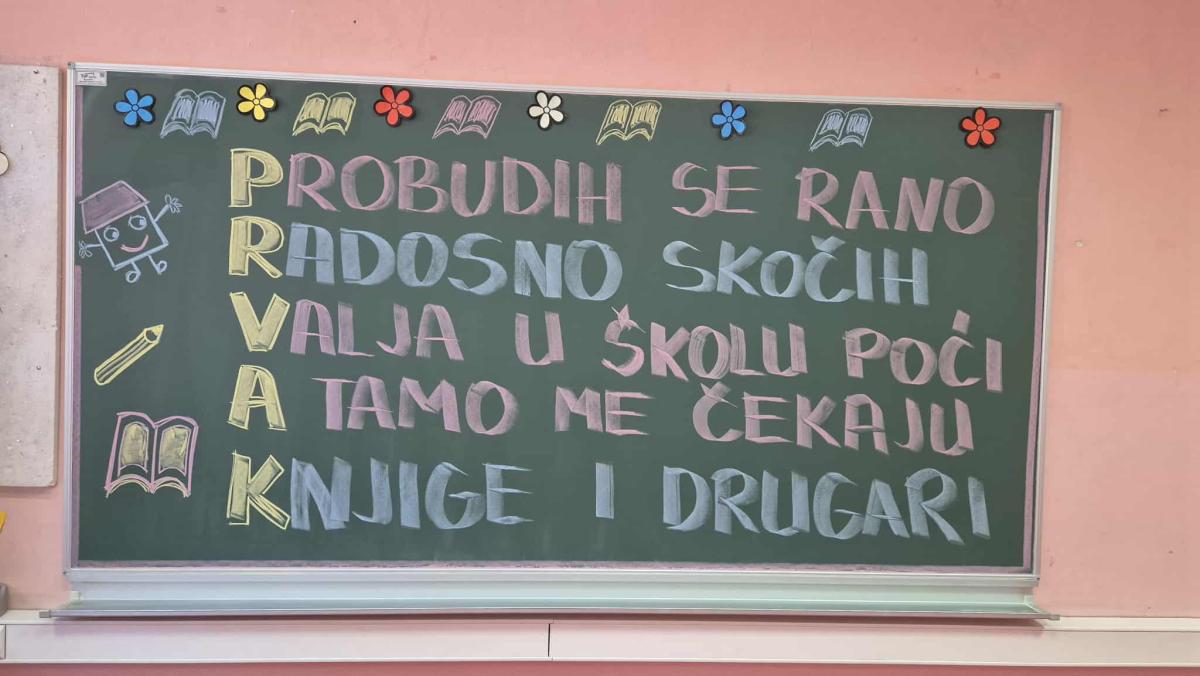 PROBUDIH SE RANO
RADOSNO SKOČIH
VALJA U ŠKOLU POĆI
A TAMO ME ČEKAJU
KNJIGE I DRUGARI